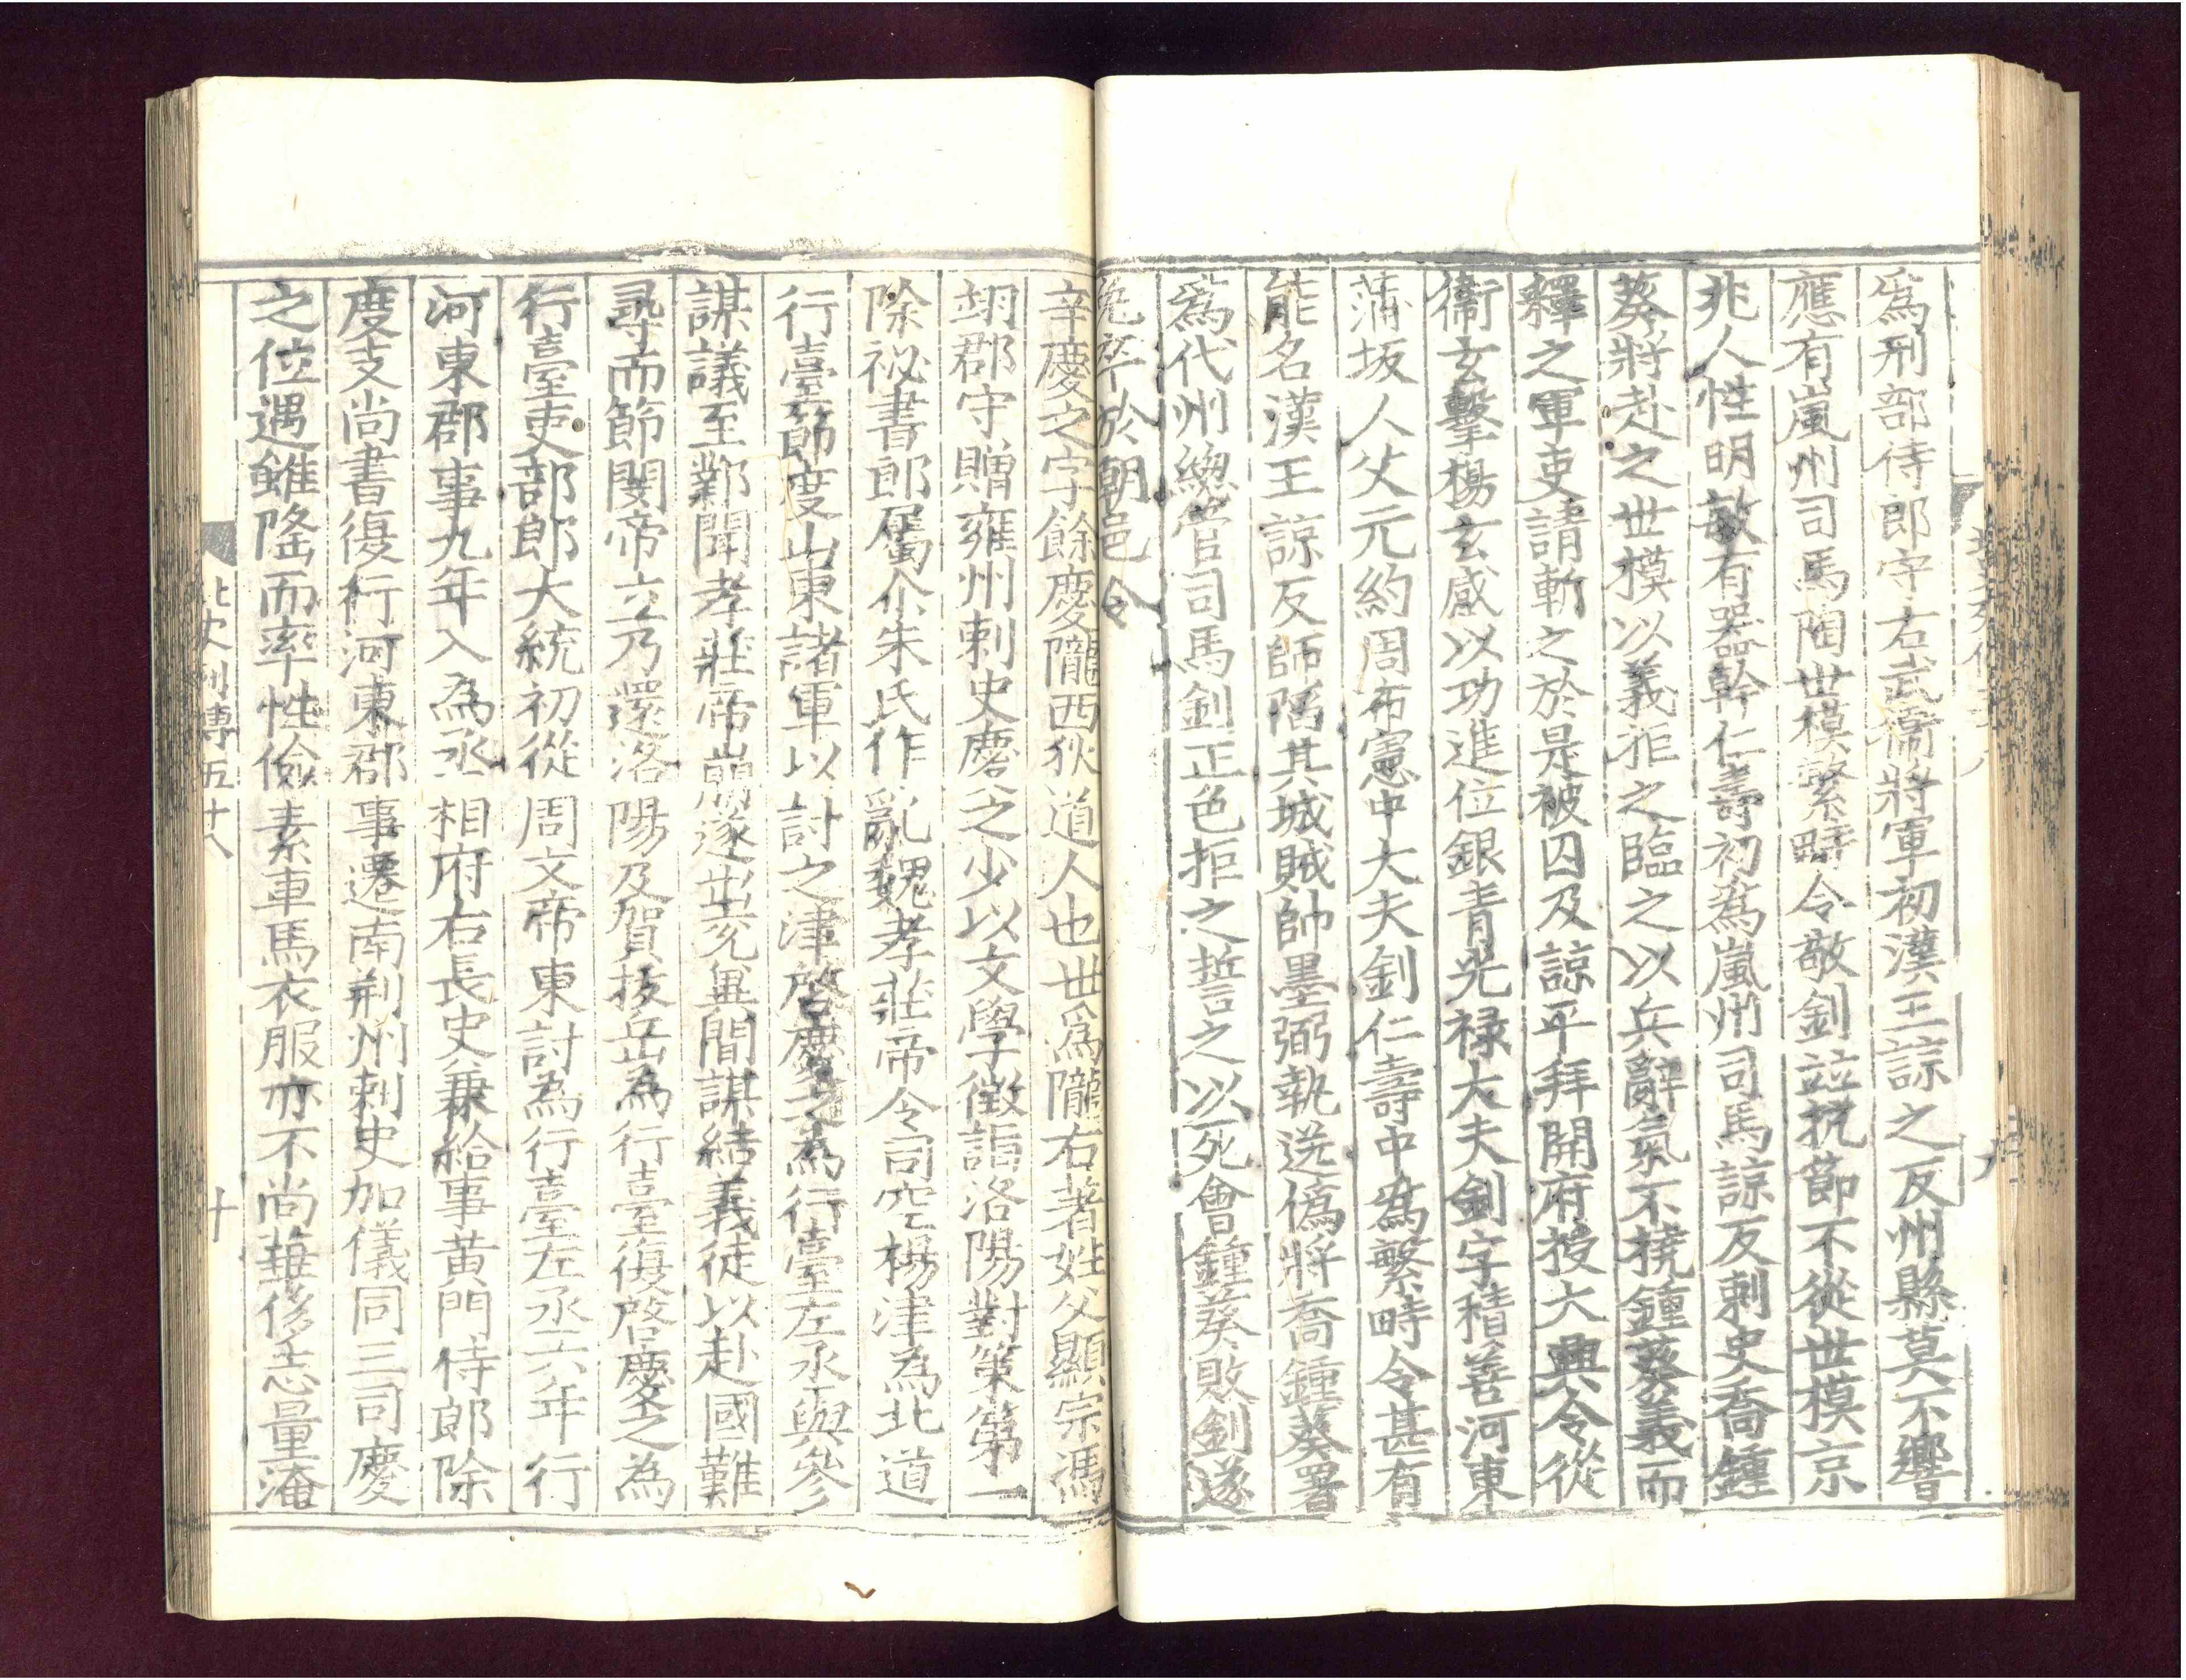 爲刑部侍郎守右武衞將軍初漢王諒之反州縣莫不響
應有嵐州司馬陶世模繁畤令敬釗竝抗節不從世模京
兆人性明敏有器幹仁壽初爲嵐州司馬諒反刺史喬鍾
葵將赴之世模以義拒之臨之以兵辭氣不撓鍾葵義而
釋之軍吏請斬之於是被囚及諒平拜開府授大興令從
衞玄擊楊玄感以功進位銀青光禄大夫釗字積善河東
蒲坂人父元約周布憲中大夫釗仁壽中爲繁畤令甚有
能名漢王諒反師陷其城賊帥墨弼執送僞將喬鍾葵署
爲代州緫管司馬釗正色拒之誓之以死會鍾葵敗釗遂
免卒於朝邑令
辛慶之字餘慶隴西狄道人也世爲隴右著姓父顯宗馮
翊郡守贈雍州刺史慶之少以文學徵詣洛陽對策第一
除祕書郎屬尒朱氏作亂魏孝莊帝令司空楊津為北道
行臺節度山東諸軍以討之津啓慶之為行臺左丞與參
謀議至鄴聞孝莊帝崩遂出兗冀間謀結義徒以赴國難
尋而節閔帝立乃還洛陽及賀拔岳為行臺復啓慶之為
行臺吏部郎大統初從周文帝東討為行臺左丞六年行
河東郡事九年入為丞相府右長史兼給事黃門侍郎除
度支尚書復行河東郡事遷南荆州刺史加儀同三司慶
之位遇雖隆而率性儉素車馬衣服亦不尚華侈志量淹
北史列傳五十八
十